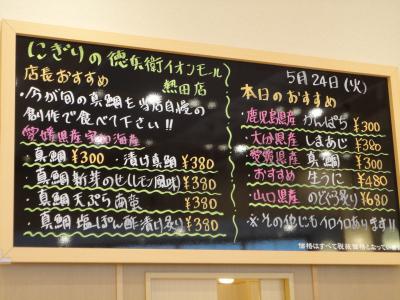 にぎりの徳兵衛イオンモール
熱田店
店長おすすめ
・今が旬の真鯛を当店自慢の
創作で食べて下さい!!
愛媛県産宇和海産
・真鯛 ¥300 ・漬け真鯛 ¥380
・真鯛新芽のせ(レモン風味) ¥380
・真鯛天ぷら ¥380
・真鯛塩ぽん酢漬け炙り ¥380
5月24日(火)
本日のおすすめ
・鹿児島県産 かんぱち ¥300
・大分県産 しまあじ ¥380
・愛媛県産 真鯛 ¥300
・おすすめ 生うに ¥480
・山口県産 のどぐろ炙り ¥680
※その他にもイロイロあります!!
価格はすべて税抜価格となってい